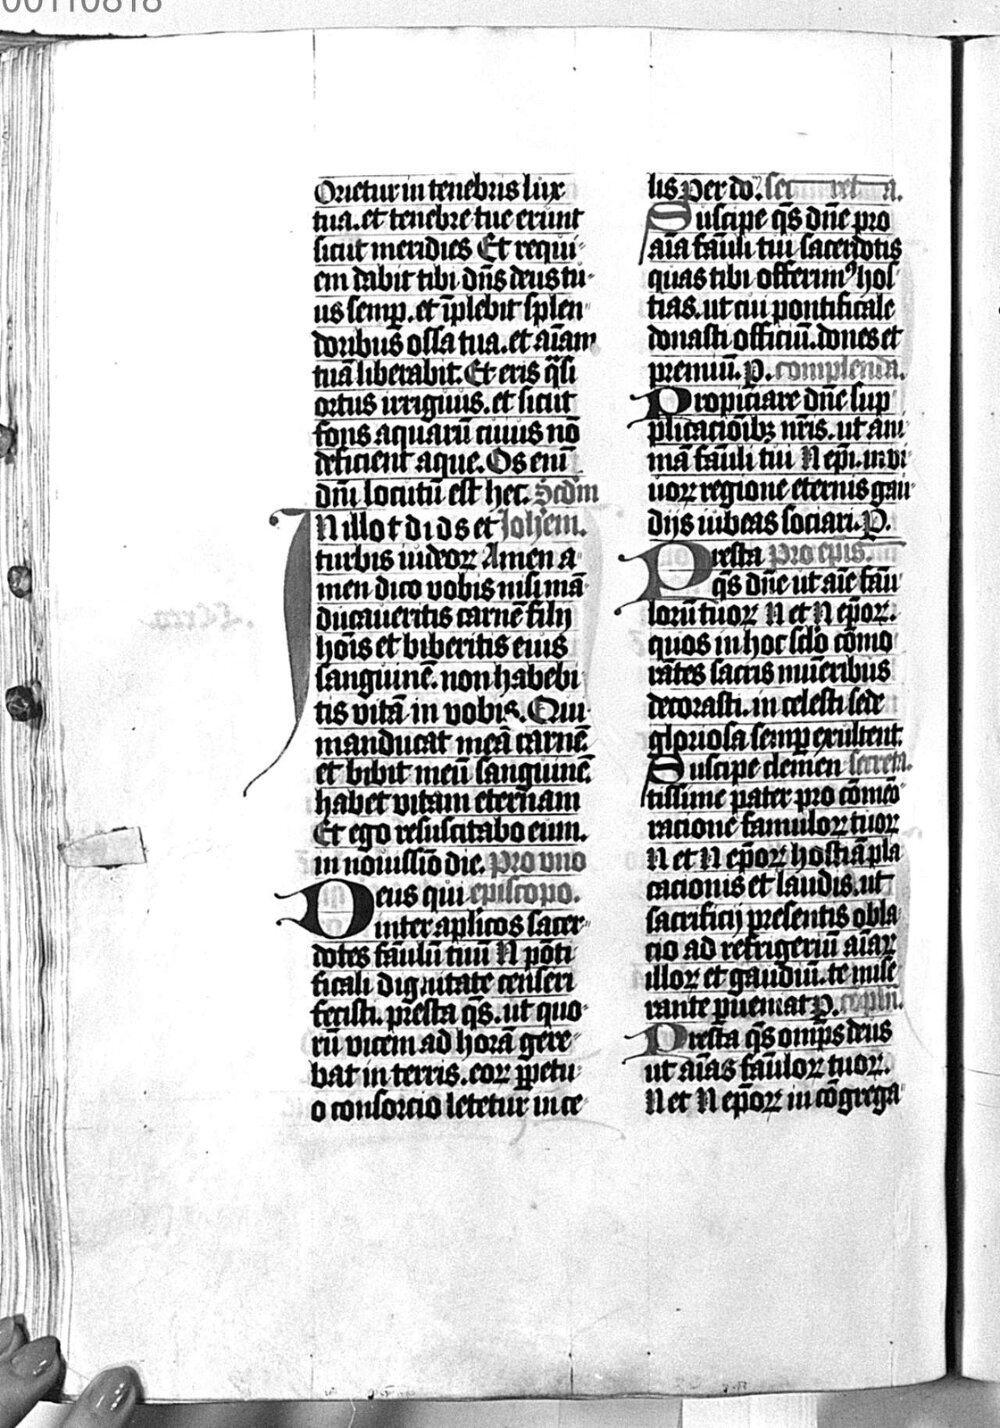 00110818
Orietur in tenebris lux
tua. et tenebre tue erunt
sicut meridies Et requi-
em dabit tibi dn̄s deus tu-
us semp̲. et īplebit splen-
doribus ossa tua. et aīam
tuā liberabit. Et eris q̄si
ortus irriguus. et sicut
fons aquarū cuius nō
deficient aque. Os enī
dn̄i locutū est hec. Scd̄m
IN illo t di ds et Joh̄em.
turbis iudeoꝝ Amen a-
men dico vobis nisi mā-
ducaueritis carnē filij
hoīs et biberitis eius
sanguinē. non habebi
tis vitā in vobis. Qui
manducat meā carnē
et bibit meū sanguinē.
habet vitam eternam
Et ego resuscitabo eum.
in nouissīo die. pro vno
Deus qui episcopo.
inter ap̄licos sacer-
dotes fāulū tuū N pōti
ficali dignitate censeri
fecisti. p̄esta q̄s. ut quo-
rū vicem ad horā gere-
bat in terris. eoꝝ ꝑpetu-
o consorcio letetur in ce-
lis Per do. secreta.
Suscipe q̄s dn̄e pro
aīa fāuli tui sacerdotis
quas tibi offerimꝰ hos
tias. ut cui pontificale
donasti officiū. dones et
premiū. P. complenda.
Propiciare dn̄e sup
plicacōibꝫ nr̄is. ut ani
mā fāuli tui N ep̄i. in vi
uoꝝ regione eternis gau
dijs iubeas sociari. P.
Presta pro ep̄is.
q̄s dn̄e ut aīe fāu
loꝝ tuoꝝ N et N ep̄oꝝ.
quos in hoc sc̄lo cōmo
rātes sacris mūeribus
decorasti. in celesti sede
gloriosa semꝑ exultent.
Suscipe clemen secreta.
tissime pater pro cōmēo
racione famuloꝝ tuoꝝ
N et N ep̄oꝝ hostiā pla
cacionis et laudis. ut
sacrificij presentis obla
cio ad refrigeriū aīaꝝ
illoꝝ et gaudiū. te mise
rante ꝑueniat P. cōpln̄.
Presta q̄s omp̄s deus
ut aīas fāuloꝝ tuoꝝ.
N et N ep̄oꝝ in cōgrega